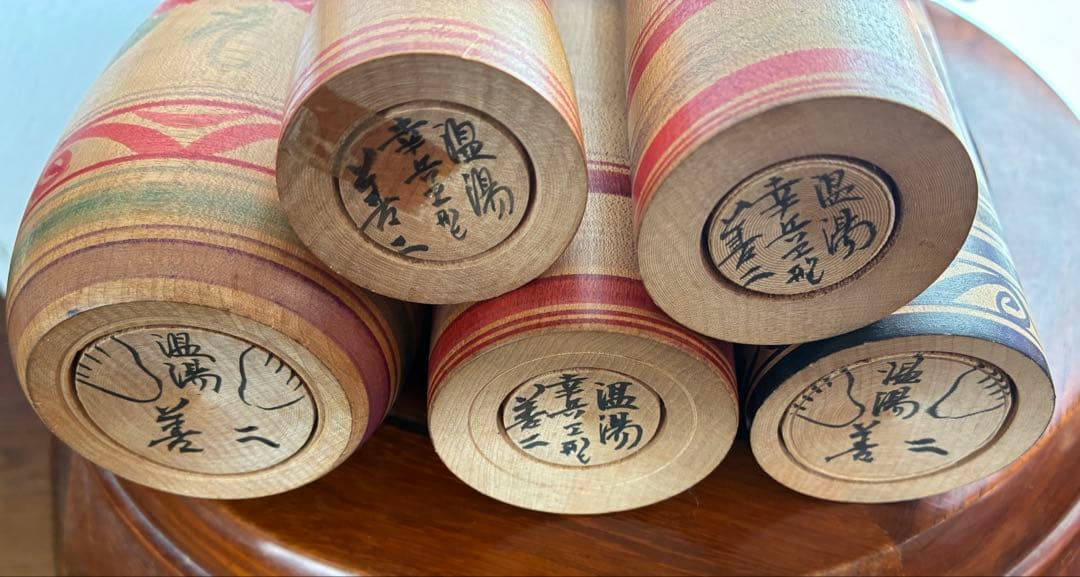 温湯
幸兵エ型
善二
温湯
幸兵エ型
善二
温湯
善二
温湯
幸兵エ型
善二
温湯
善二